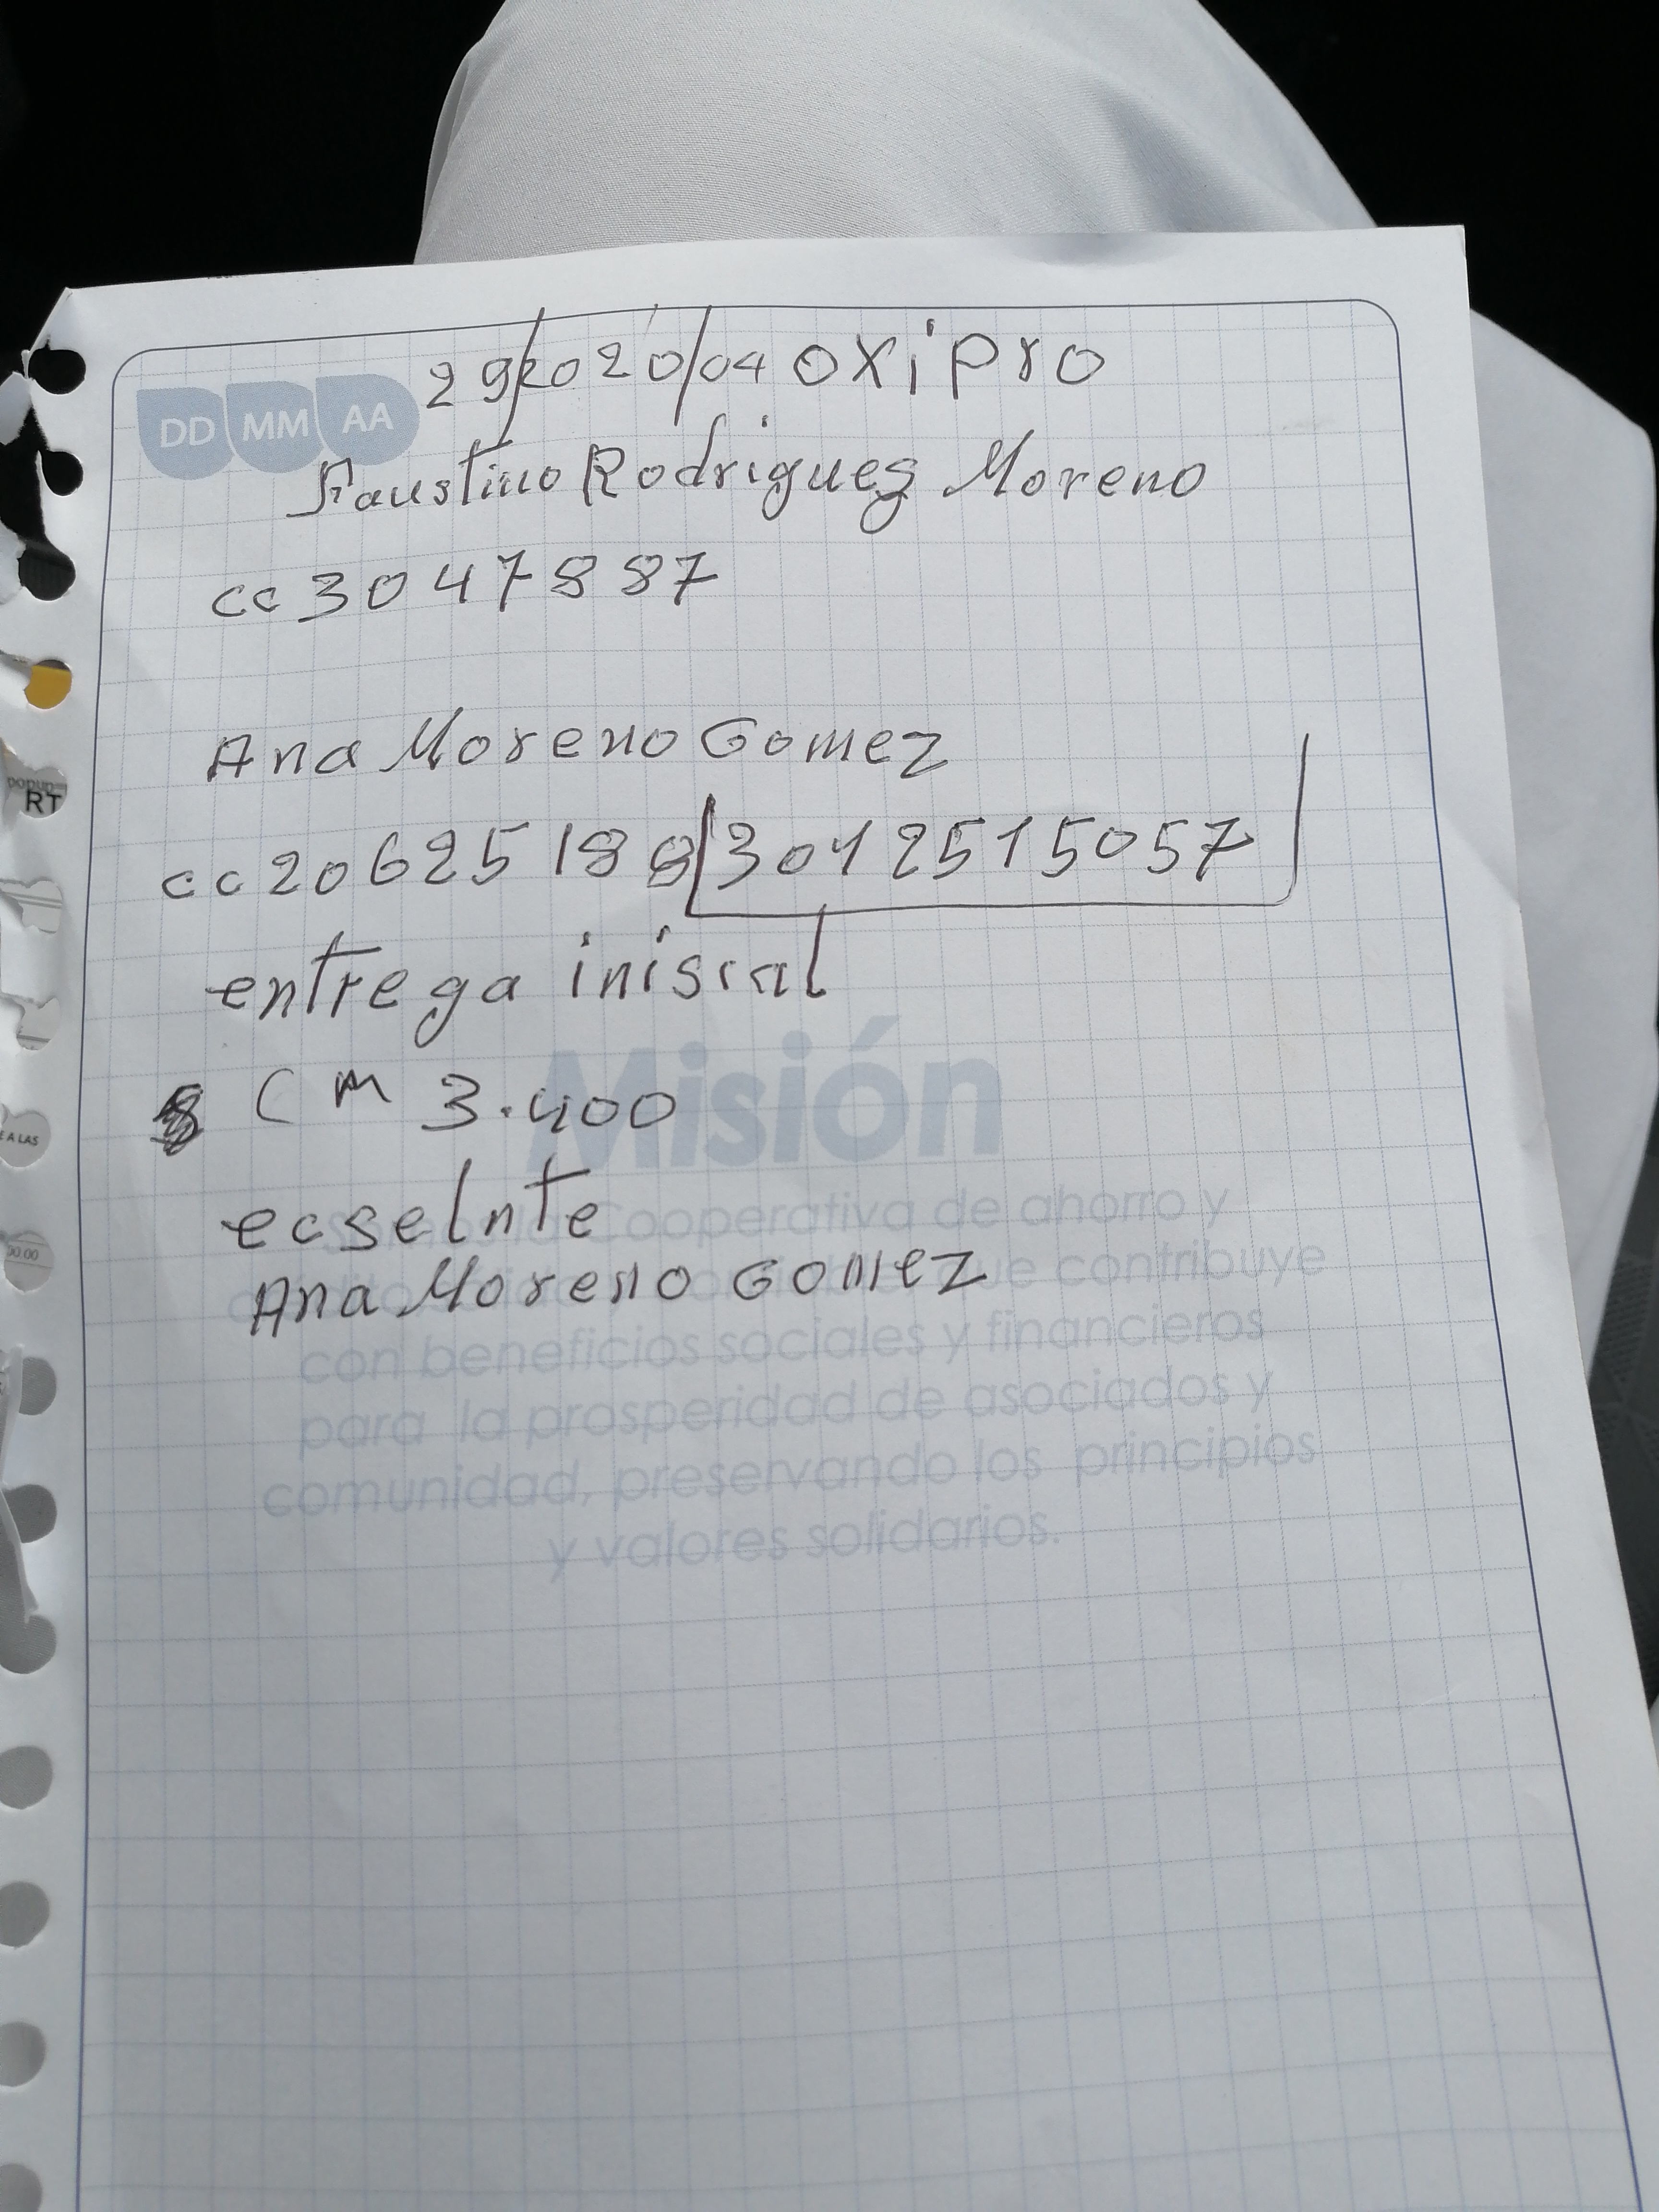 29/2020/04 oxipro
DD MM AA
Faustino Rodriguez Moreno
cc 3047887
Ana Moreno Gomez
cc 20625188 3012515057
entrega inisial
CM 3.400
ecselnte
Ana Moreno Gomez
Misión
Cooperativa de ahorro y
ue contribuye
con beneficios sociales y financieros
para la prosperidad de asociados y
comunidad, preservando los principios
y valores solidarios.
RT
E A LAS
00.00